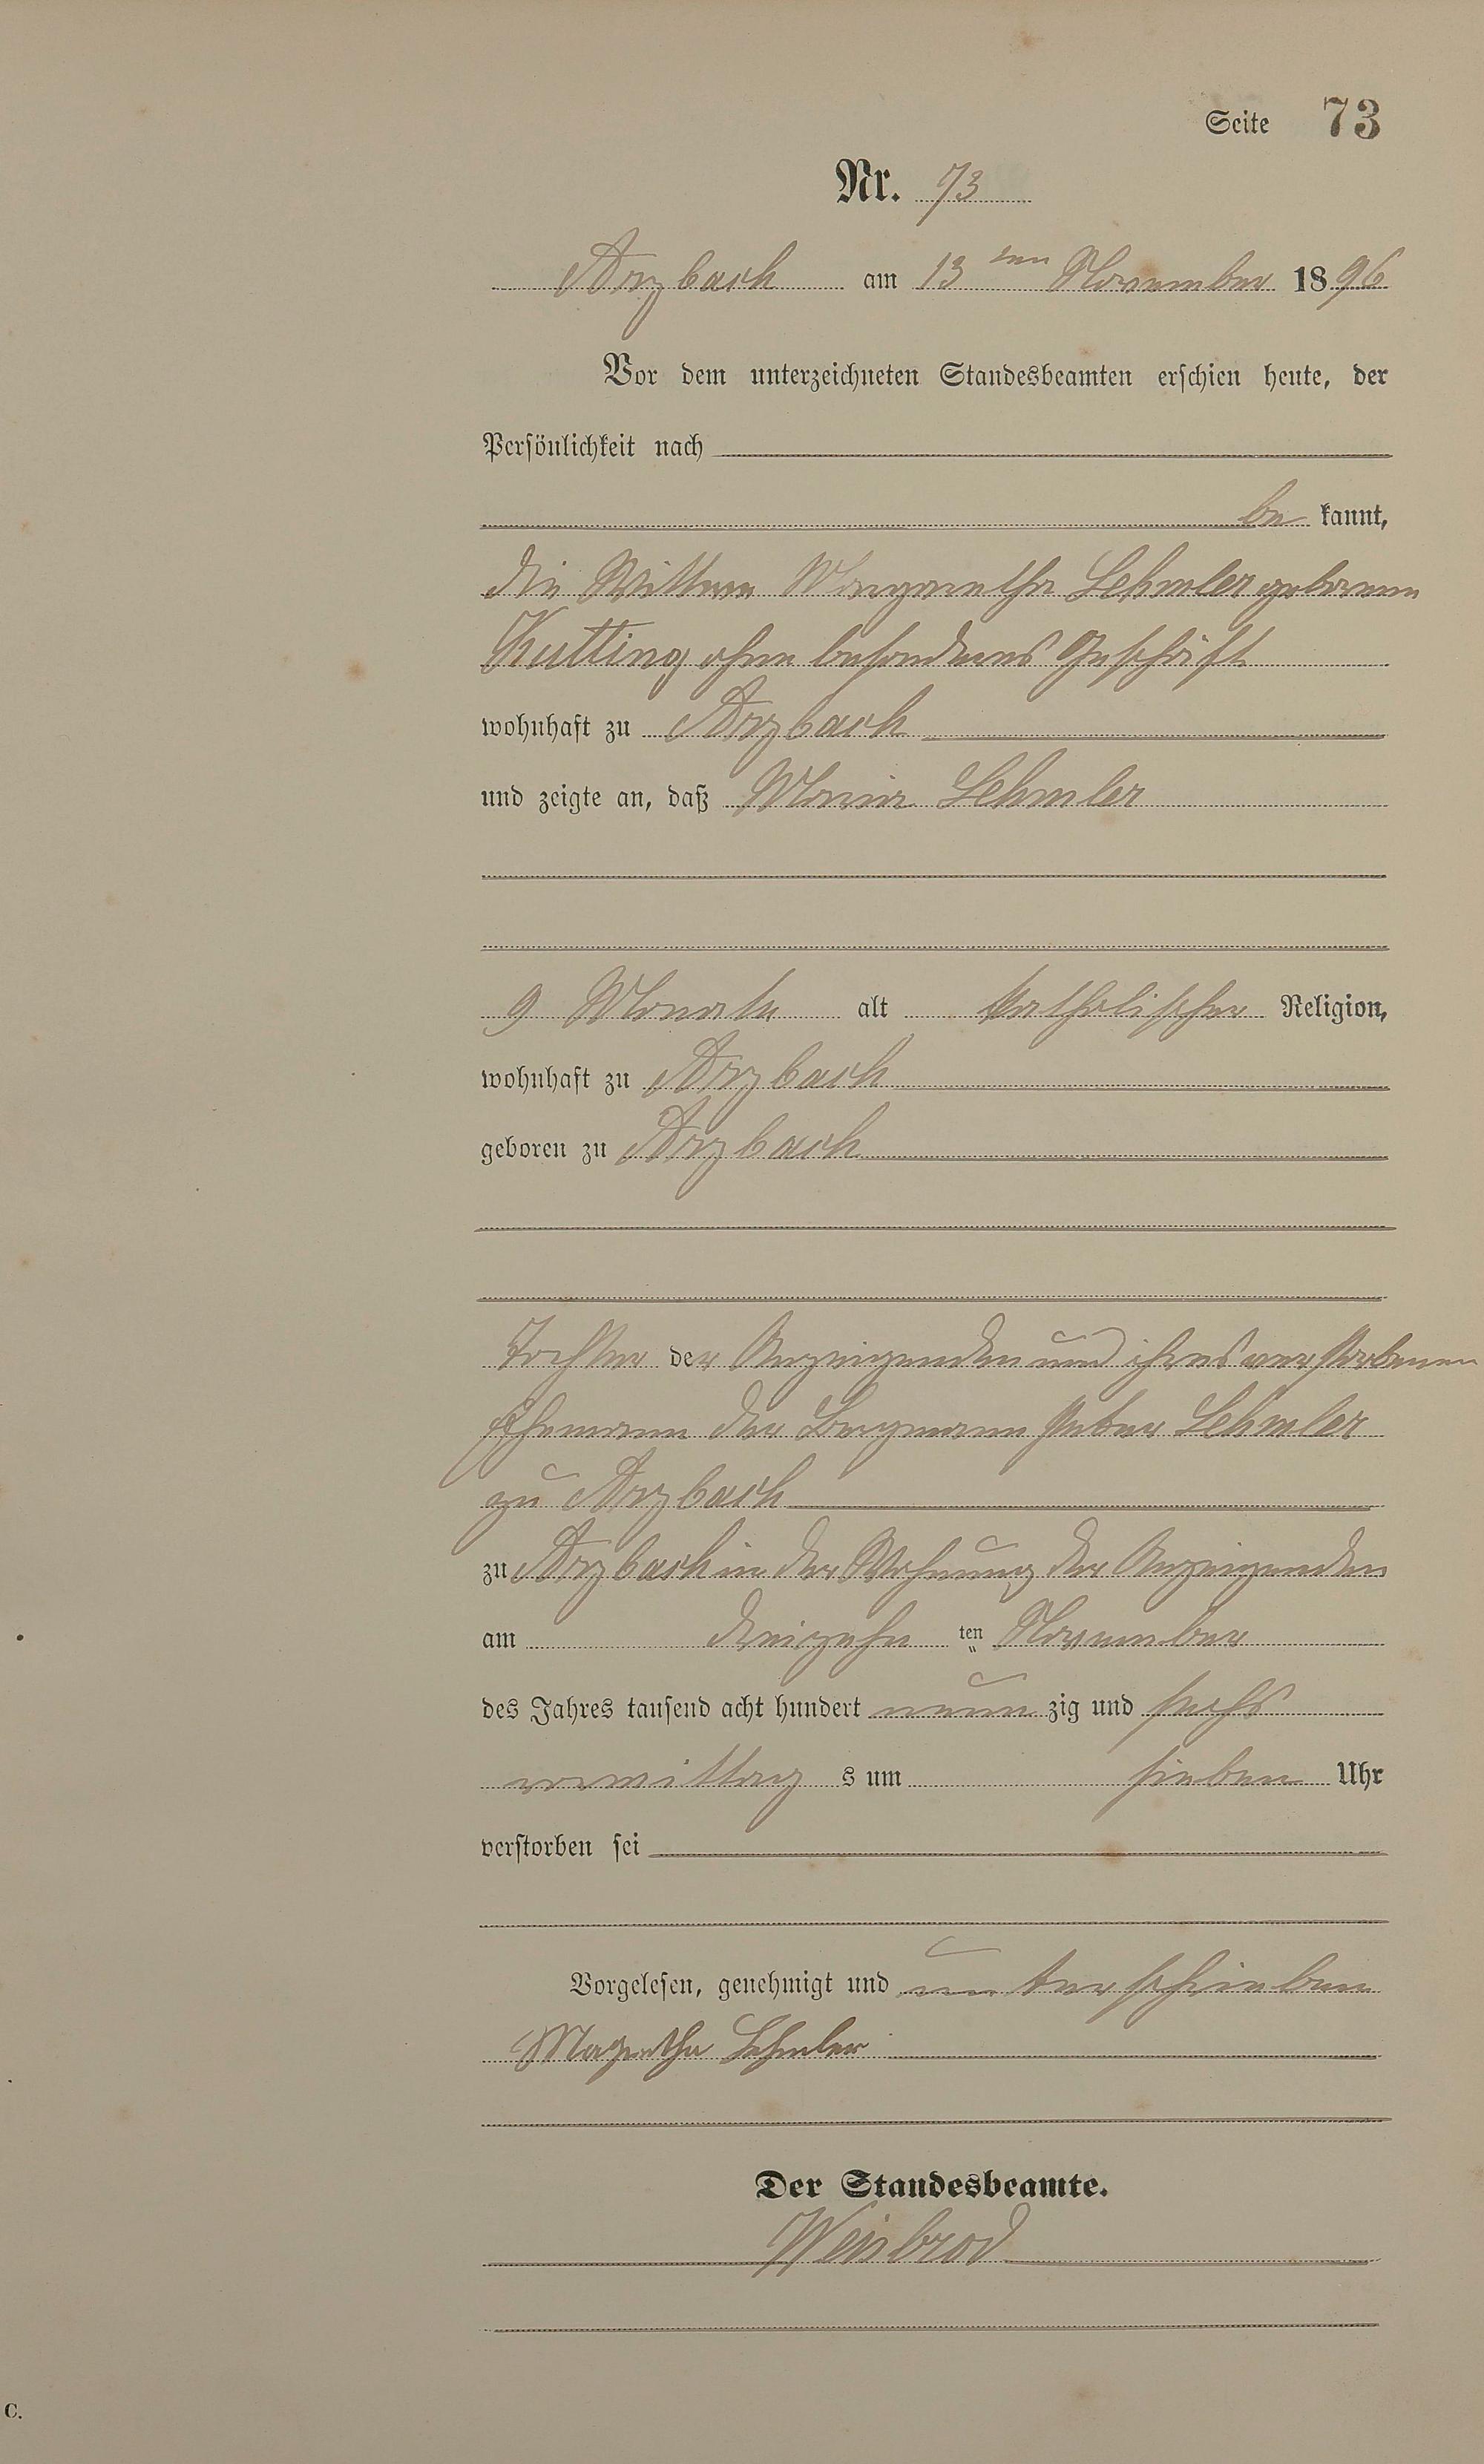 Seite 73
Nr. 73
Arzbach am 13 ten November 1896
Vor dem unterzeichneten Standesbeamten erschien heute, der
Persönlichkeit nach
be kannt,
die Wittwe Margaretha Lehmler geborene
Kutting ohne besonderes Geschäft
wohnhaft zu Arzbach
und zeigte an, daß Maria Lehmler
9 Monate alt katholischer Religion,
wohnhaft zu Arzbach
geboren zu Arzbach
Tochter der Anzeigenden und ihres verstorbenen
Ehemann der Bergmann Peter Lehmler
zu Arzbach
zu Arzbach in der Wohnung der Anzeigenden
am dreizehn ten November
des Jahres tausend acht hundert neun zig und sechs
vormittag s um sieben Uhr
verstorben sei
Vorgelesen, genehmigt und unterschrieben
Magretha Lehmler
Der Standesbeamte.
Weisbrod
C.